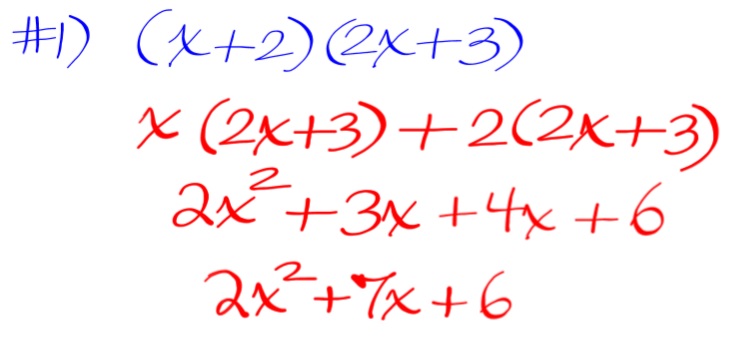 #1) (x+2)(2x+3)
x(2x+3)+2(2x+3)
2x²+3x+4x+6
2x²+7x+6